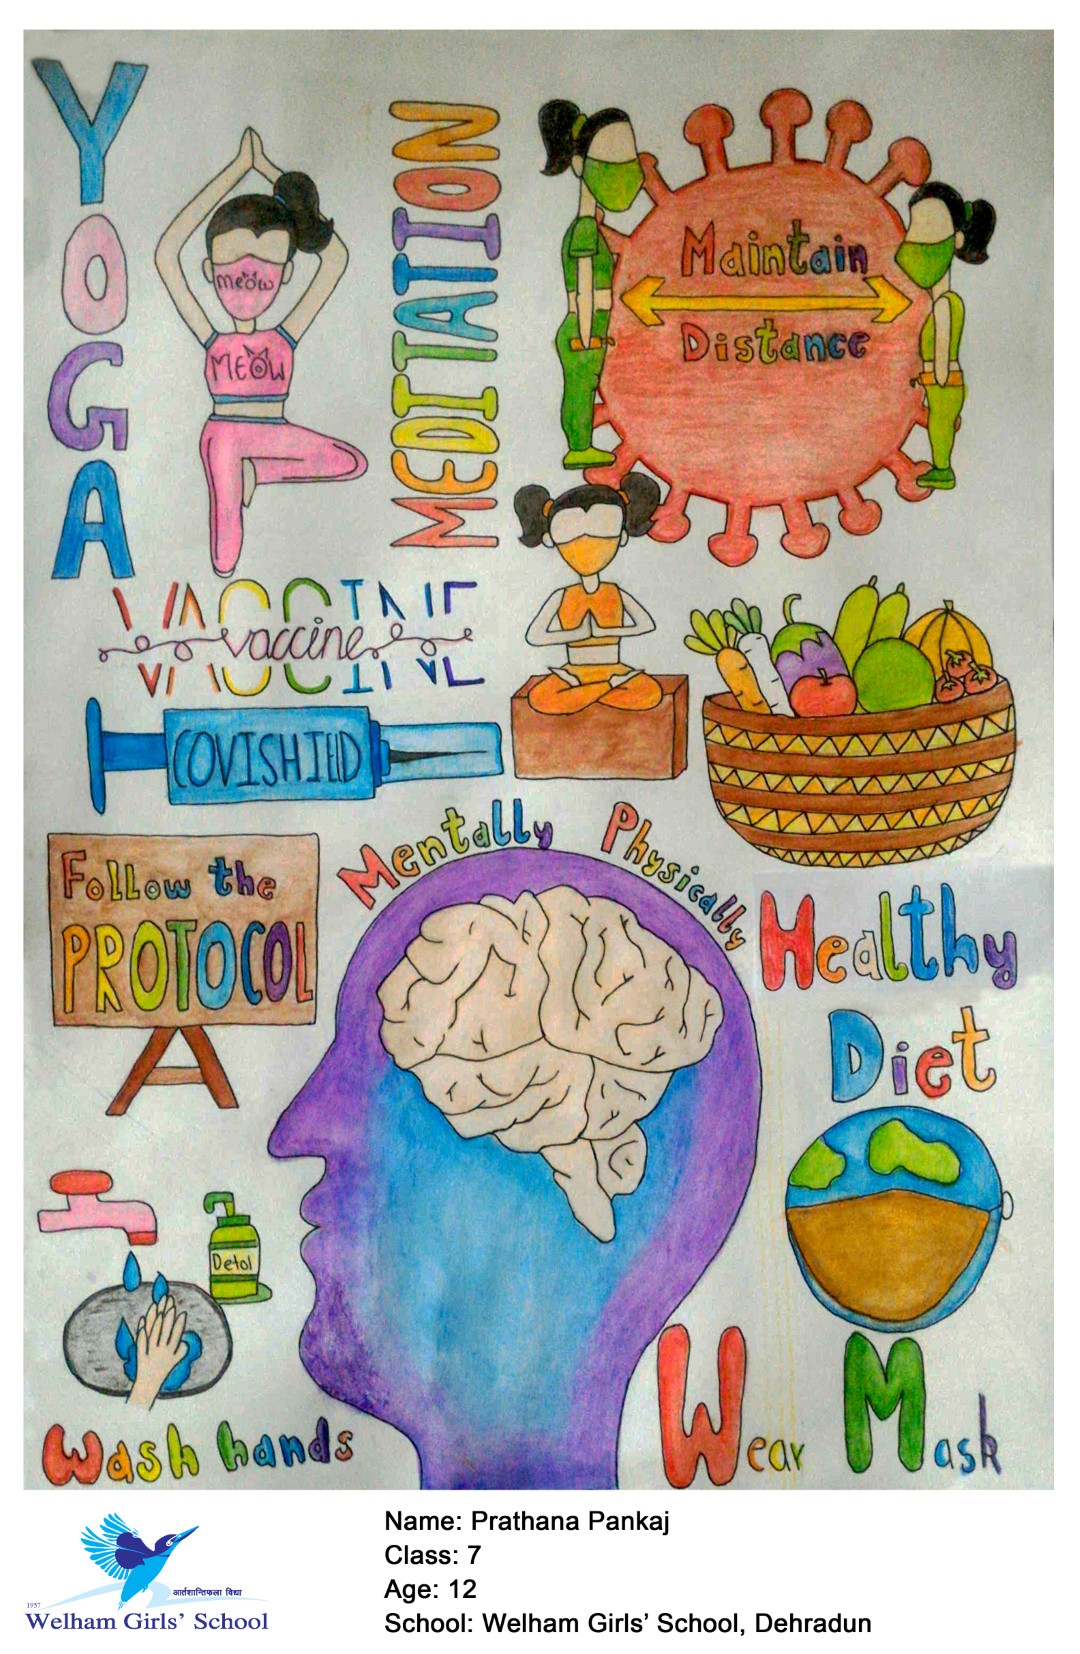 YOGA
meow
MEOW
MEDITATION
Maintain
Distance
VACCINE
vaccine
COVISHIELD
Follow the
PROTOCOL
Mentally Physically
Healthy
Diet
Detol
Wash hands
Wear Mask
1957
आर्तशान्तिफला विद्या
Welham Girls' School
Name: Prathana Pankaj
Class: 7
Age: 12
School: Welham Girls' School, Dehradun